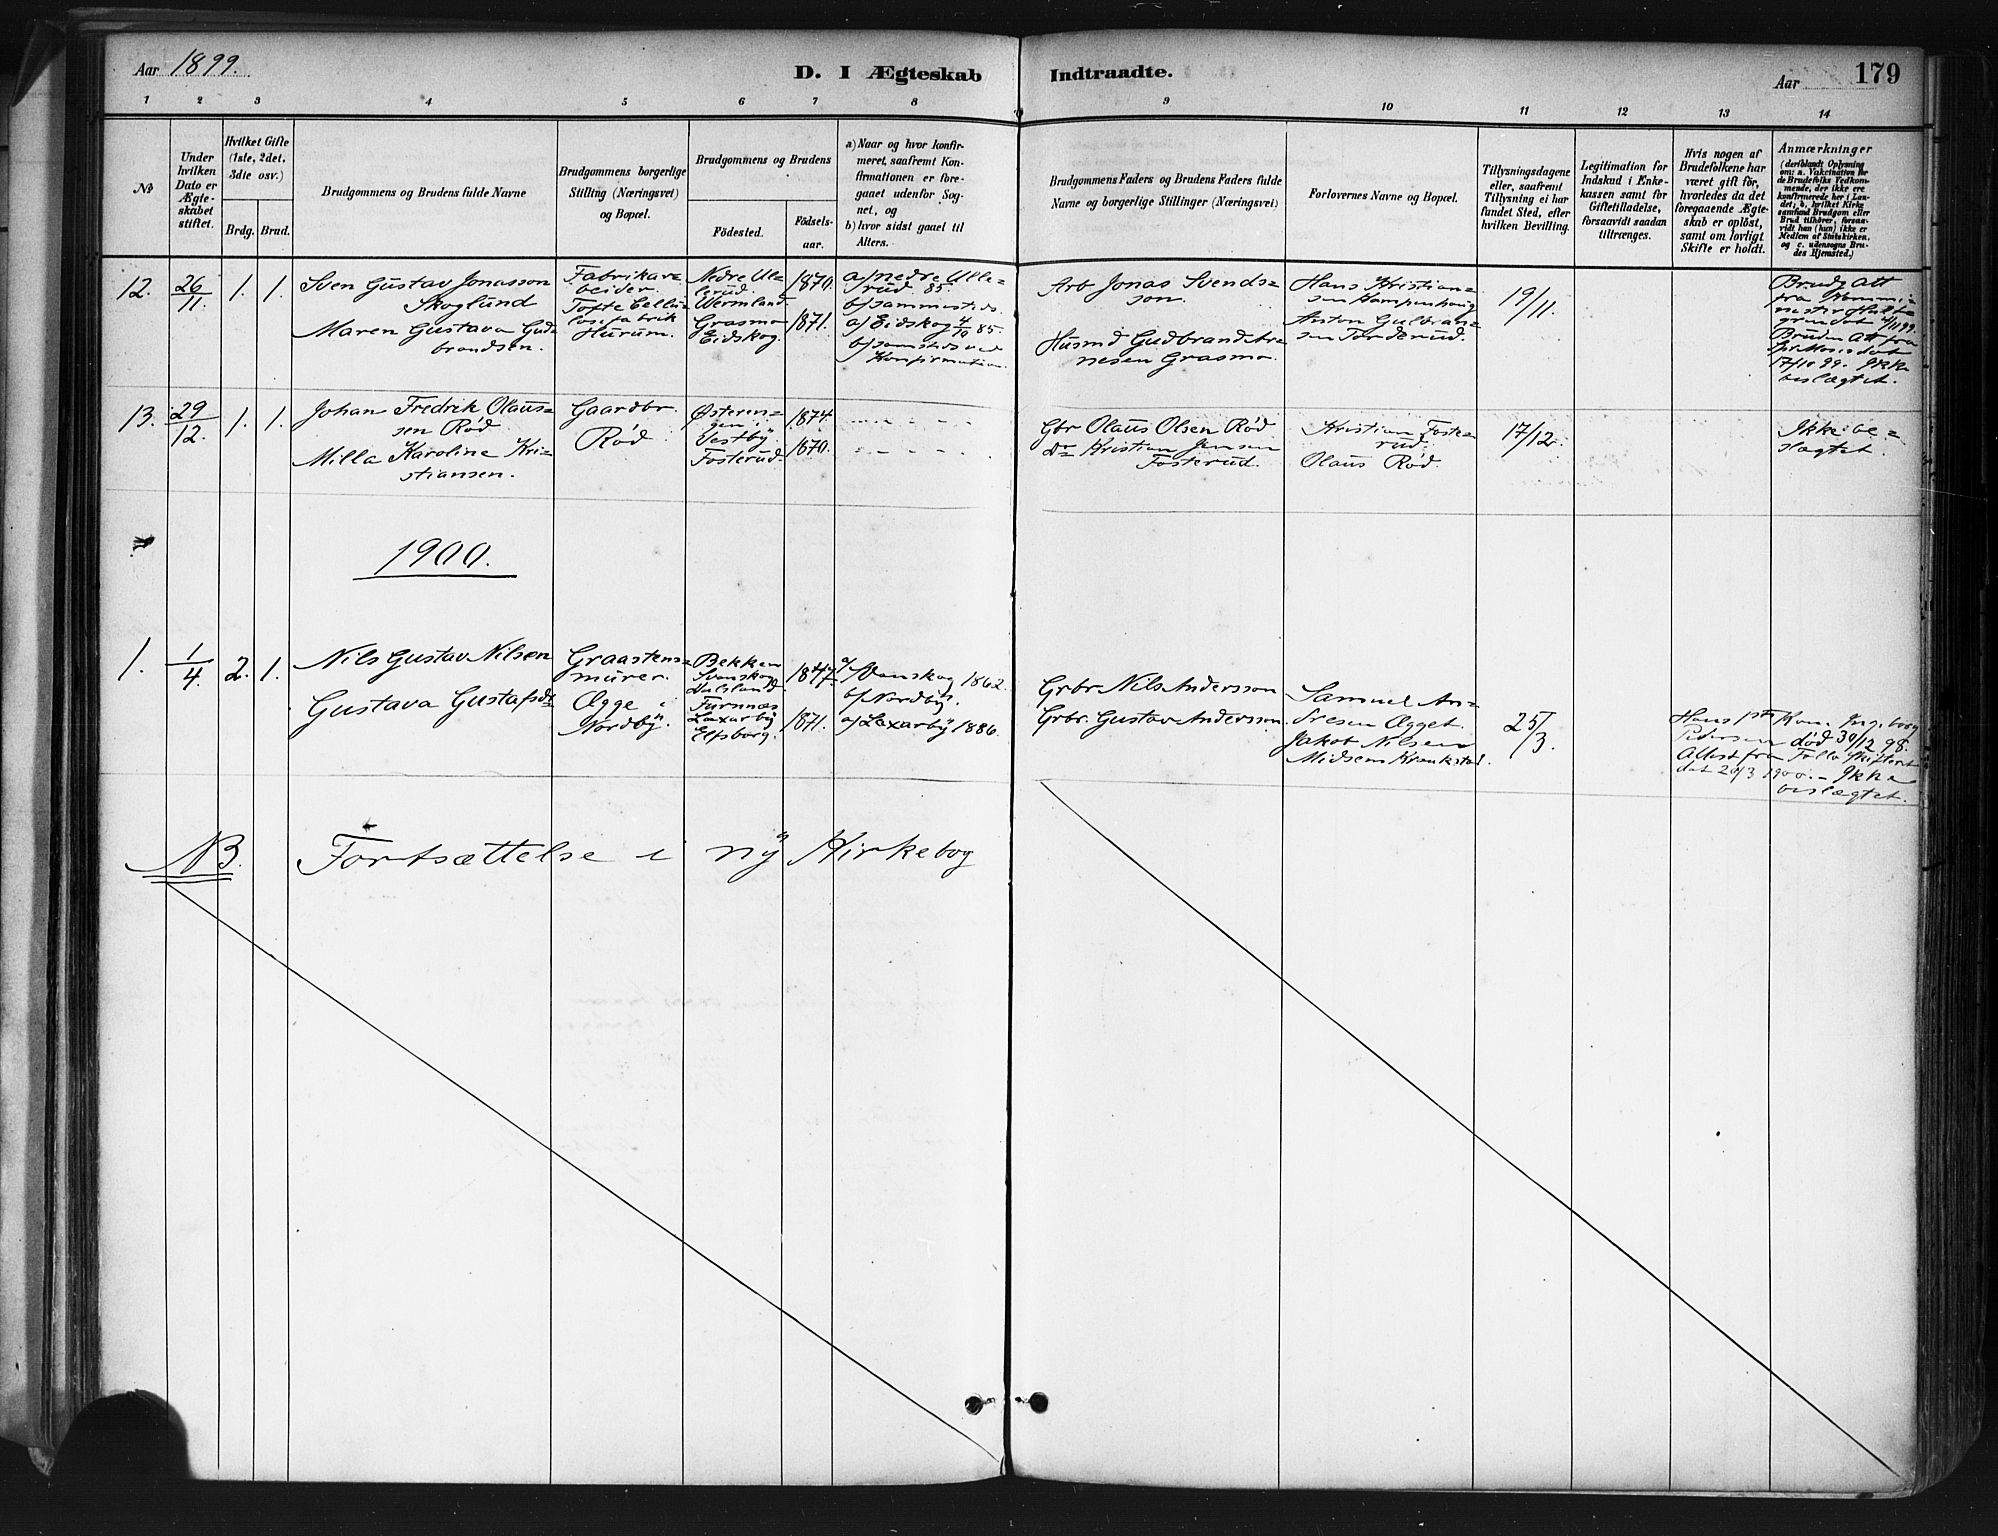 Aar 1899.
D. I Ægteskab Indtraadte.
Aar 179
1 2 3 4 5 6 7 8 9 10 11 12 13 14
No
Under hvilken Dato er Ægteskabet stiftet.
Hvilket Gifte (1ste, 2det, 3die osv.)
Brdg. Brud.
Brudgommens og Brudens fulde Navne
Brudgommens borgerlige Stilling (Næringsvei) og Bopæl.
Brudgommens og Brudens
Födested.
Födsels-aar.
a) Naar og hvor konfirmeret, saafremt Konfirmationen er foregaaet udenfor Sognet, og
b) hvor sidst gaaet til Alters.
Brudgommens Faders og Brudens Faders fulde Navne og borgerlige Stillinger (Næringsvei)
Forlovernes Navne og Bopæl.
Tillysningsdagene eller, saafremt Tillysning ei har fundet Sted, efter hvilken Bevilling.
Legitimation for Indskud i Enkekassen samt for Giftetilladelse, forsaavidt saadan tiltrænges.
Hvis nogen af Brudefolkene har været gift för, hvorledes da det foregaaende Ægteskab er oplöst, samt om lovligt Skifte er holdt.
Anmærkninger
(deriblandt Oplysning om: a. Vakcination for de Brudefolks Vedkommende, der ikke ere konfirmerede her i Landet; b. hvilket Kirkesamfund Brudgom eller Brud tilhörer, forsaavidt han (hun) ikke er Medlem af Statskirken, og c. udensogns Brudes Hjemsted.)
12. 26/11. 1. 1.
Sven Gustav Jonasson
Skoglund
Maren Gustava Gud-
brandsen.
Fabrikar-
beider.
Tofte Cellu-
losefabrik
Hurum.
Nedre Ulle-
rud.
Wermland 1870.
Grasmo
Eidskog. 1871.
a) Nedre Ulle-
rud. 85.
b) sammesteds.
a) Eidskog 4/10 85.
b) samsteds ved
Konfirmation.
Arb Jonas Svends-
son.
Husmd Gudbrand
Grasmo.
Hans Kristian-
sen
Anton Gulbran-
sen Torderud.
19/11.
Brudg Att
fra
Bruden Att fra
17/10 99. Ikke
beslægtet.
13. 29/12. 1. 1.
Johan Fredrik Olaus-
sen Rød
Milla Karoline Kri-
stiansen.
Gaardbr.
Rød
Østeren-
gen i
Vestby 1874.
Fosterud. 1870.
Gbr Olaus Olsen Rød
do Kristian Jensen
Fosterud.
Kristian Foste-
rud.
Olaus Rød.
17/12.
Ikke be-
slægtet.
1900.
1. 1/4. 2. 1.
Nils Gustav Nilsen
Gustava Gustafsdr
Graastens-
murer.
Ægge i
Nordby.
Bekken
Svanskog
Dalsland 1847.
Furnnæs
Laxarby
Elfsborg. 1871.
a/ Svanskog 1862.
b/ Nordby.
a/ Laxarby 1886.
Grbr Nils Andersson
Grbr. Gustav Andersson.
Samuel An-
dresen Ægget.
Jakob Nilsen
Midsem Kraakstad.
25/3.
Hans Kon. Ingeborg
Pedersen død 30/12 98.
Attest fra Follo Skifteret
dat 20/3 1900. – Ikke
beslægtet.
NB. Fortsættelse i ny Kirkebog